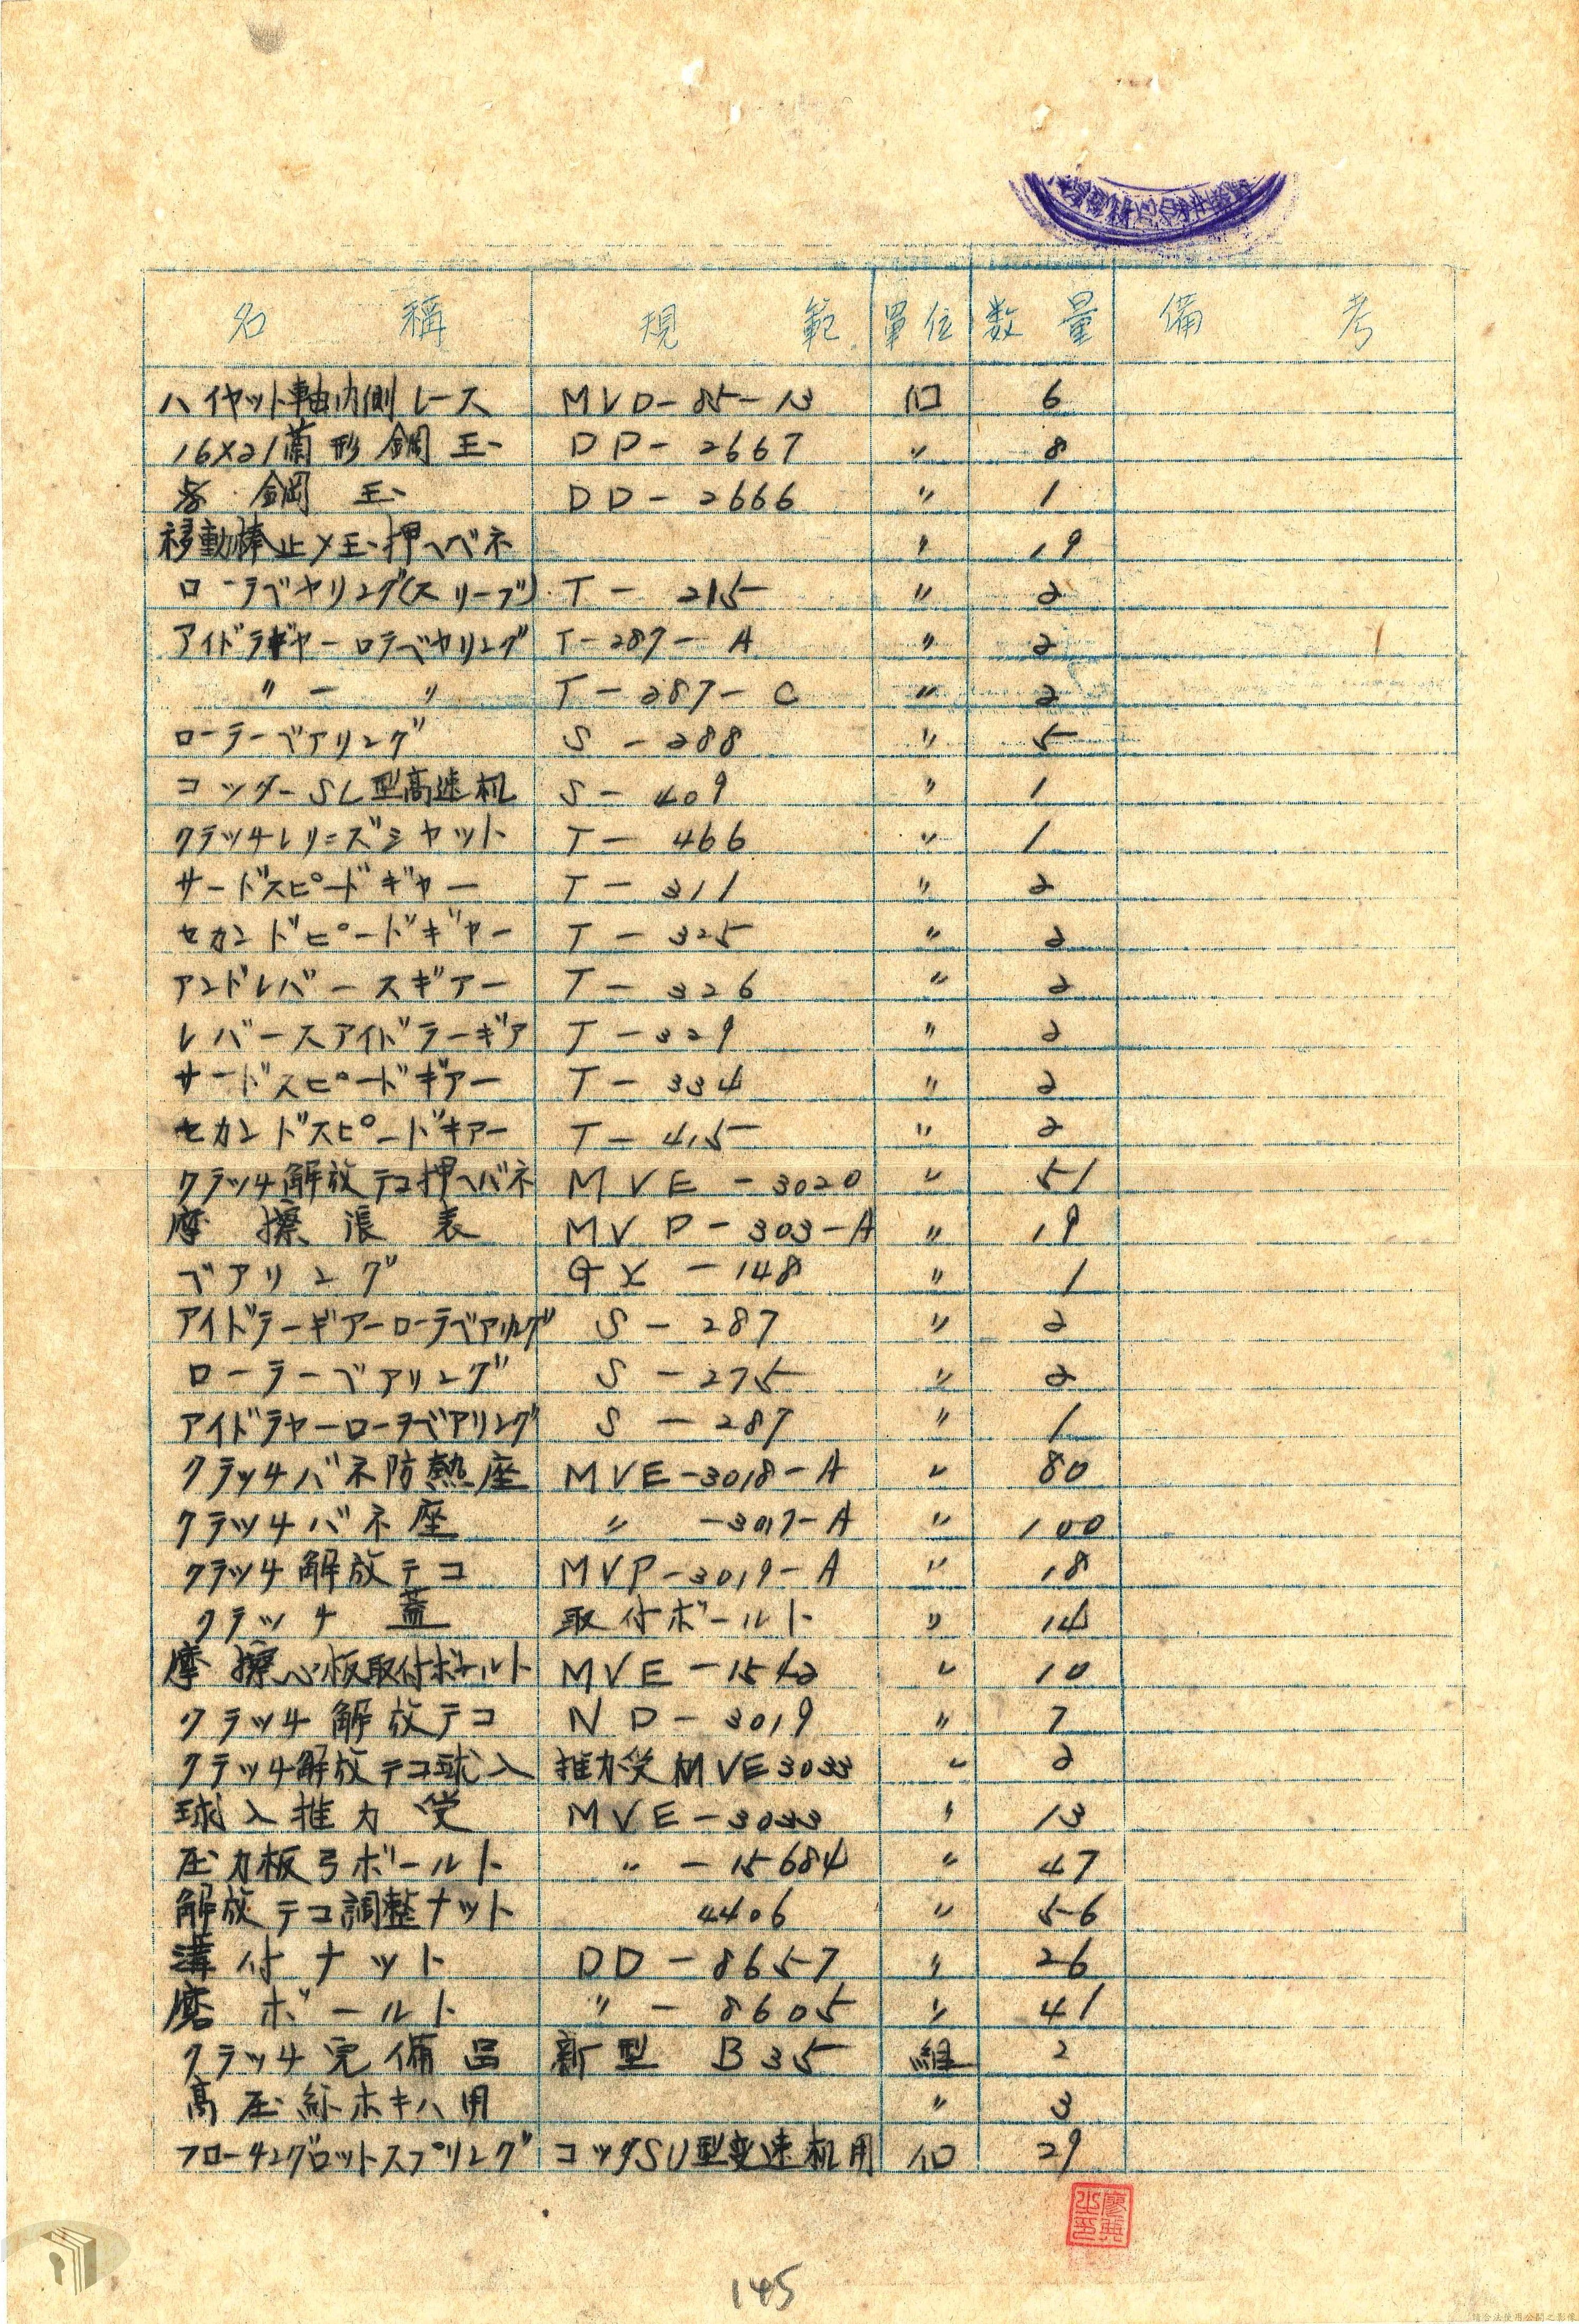 名稱 規範 單位 数量 備考
ハイヤット軸内側レース MVD-85-13 个口 6
16X21菌形鋼玉 DD-2667 〃 8
鋼玉 DD-2666 〃 1
移動棒止メ玉押ヘベネ 〃 19
ローラベヤリング(スリーブ) T-215 〃 2
アイドラギヤーロラベヤリング T-287-A 〃 2
〃ー〃 T-287-C 〃 2
ローラーベアリング S-288 〃 5
コッダーSL型高速机 S-409 〃 1
クラッチレリーズシャット T-466 〃 1
サードスピードギヤー T-311 〃 2
セカンドピードギヤー T-325 〃 2
アンドレバースギアー T-326 〃 2
レバースアイドラーギア T-329 〃 2
サードスピードギアー T-334 〃 2
セカンドスピードキアー T-415 〃 2
クラッチ解放テコ押ヘバネ MVE-3020 〃 51
摩擦張表 MVD-303-A 〃 19
ベアリング GX-148 〃 1
アイドラーギアーローラベアリング S-287 〃 2
ローラーベアリング S-275 〃 2
アイドラヤーローラベアリング S-287 〃 1
クラッチバネ防熱座 MVE-3018-A 〃 80
クラッチバネ座 〃-3017-A 〃 100
クラッチ解放テコ MVP-3019-A 〃 18
クラッチ蓋 取付ボールト 〃 14
摩擦心板取付ボールト MVE-1542 〃 10
クラッチ解放テコ ND-3019 〃 7
クラッチ解放テコ球入 推力受MVE3033 〃 2
球入推力受 MVE-3033 〃 13
圧力板弓ボールト 〃-15684 〃 47
解放テコ調整ナット 4406 〃 56
溝付ナット DD-8657 〃 26
磨ボールト 〃-8605 〃 41
クラッチ完備品 新型 B35 組 2
高圧紅ホキハ用 〃 3
フローチングロットスプリング コッダSU型变速机用 个口 29
145